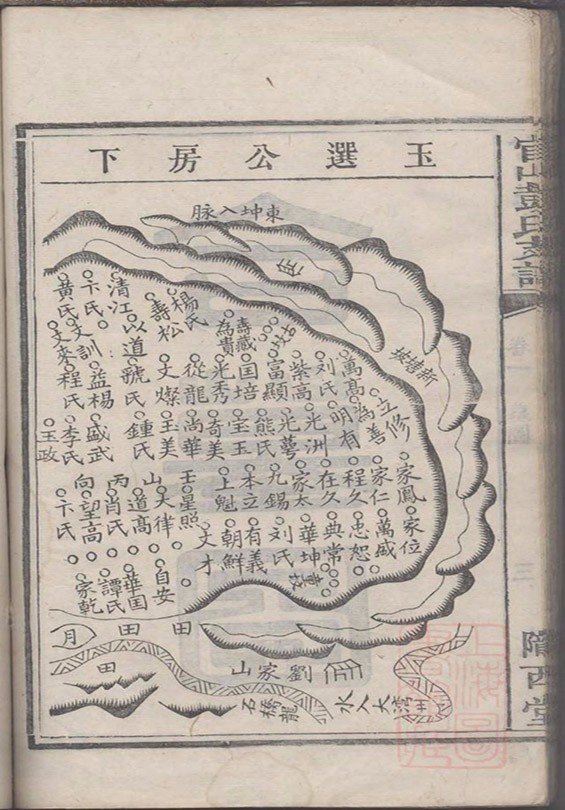 玉選公房下
東坤入脉
新塘坡
立修
萬高
為善
刘氏
明有
紫高
光洲
富顯
光萼
国培
熊氏
壽藏
為貴
光秀
宝玉
從龍
奇美
楊氏
壽松
文燦
尚華
玉美
清江
以道
號氏
鍾氏
卞氏
文訓
益楊
盛武
黄氏
文來
程氏
李氏
玉政
家鳳
家位
家仁
萬盛
程久
忠恕
在久
典常
家太
華坤
九錫
刘氏
本立
有義
上魁
朝鮮
文才
壬
星照
山
大律
道高
丙
肖氏
向
望高
卞氏
自安
華国
譚氏
家乾
田
田
月
田
劉家山
石橋
龍
大灣
入
水
隴西堂